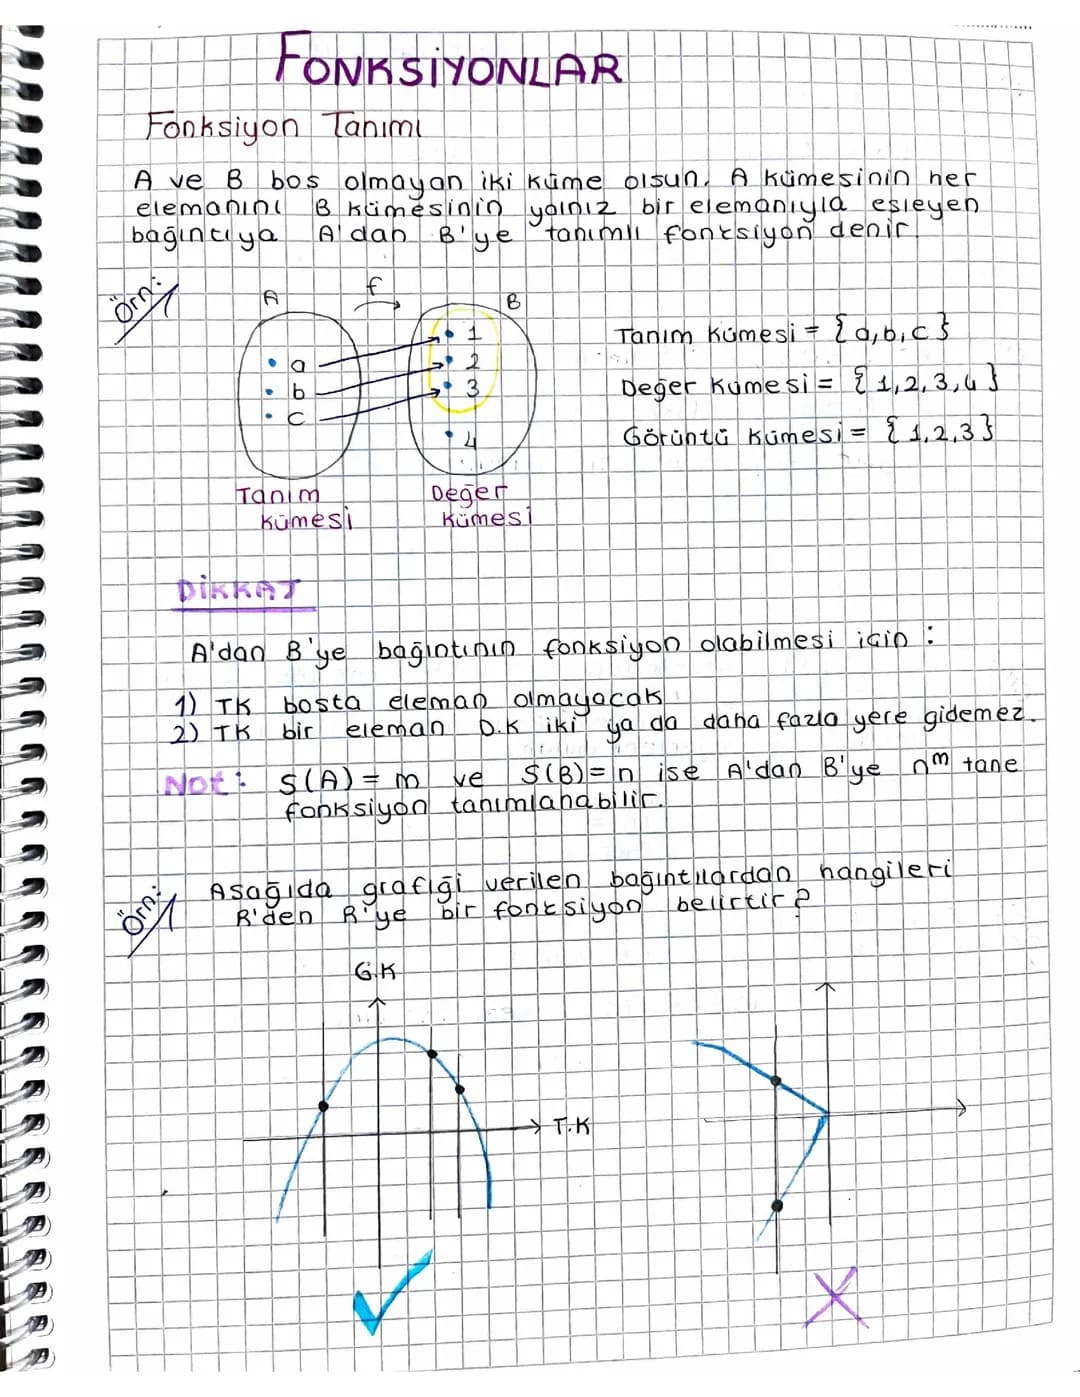 FONKSİYONLAR
Fonksiyon Tanımı
A ve B boş olmayan iki küme olsun. A kümesinin her
elemanını B kümesinin yalnız bir elemanıyla eşleyen
bağıntıya A'dan B'ye tanımlı fonksiyon denir.
Örn:
A f B
a 1
b 2
c 3
4
Tanım kümesi
Değer kümesi
Tanım kümesi = {a,b,c}
Değer kümesi = {1,2,3,4}
Görüntü kümesi = {1,2,3}
DİKKAT
A'dan B'ye bağıntının fonksiyon olabilmesi için :
1) TK boşta eleman olmayacak
2) TK bir eleman D.K iki ya da daha fazla yere gidemez.
Not: S(A) = m ve S(B) = n ise A'dan B'ye n^m tane
fonksiyon tanımlanabilir.
Örn:
Aşağıda grafiği verilen bağıntılardan hangileri
R'den R'ye bir fonksiyon belirtir?
G.K
T.K